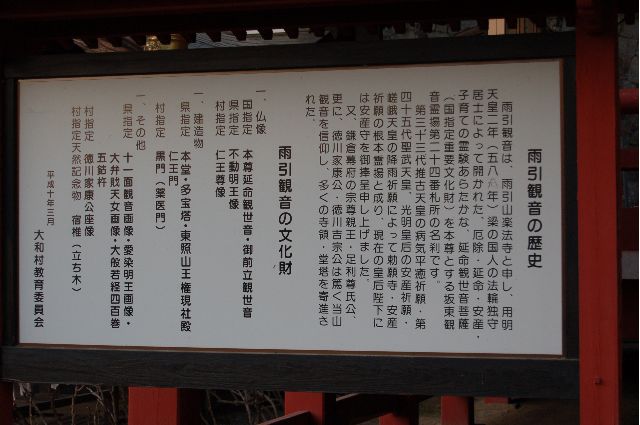 雨引観音の歴史
雨引観音は、雨引山楽法寺と申し、用明
天皇二年（五八六年）、梁の国人の法輪独守
居士によって開かれた、厄除・延命・安産・
子育ての霊験あらたかな、延命観世音菩薩
（国指定重要文化財）を本尊とする坂東観
音霊場第二十四番札所の名刹です。
第三十三代推古天皇の病気平癒祈願・第
四十五代聖武天皇、光明皇后の安産祈願・
嵯峨天皇の降雨祈願によって勅願寺・安産
祈願の根本霊場と成り、現在の皇后陛下に
は安産守を御捧呈申し上げました。
又、鎌倉幕府の宗尊親王・足利尊氏公、
更に、徳川家康公・徳川重宗公は篤く当山
観音を信仰し、多くの寺領・堂塔を寄進さ
れた。
雨引観音の文化財
一、仏像
国指定 本尊延命観世音・御前立観世音
県指定 不動明王像
村指定 仁王尊像
一、建造物
県指定 本堂・多宝塔・東照山王権現社殿
仁王門
村指定 黒門（薬医門）
一、その他
県指定 十一面観音画像・愛染明王画像・
大弁財天女画像・大般若経四百巻
五鈷杵
村指定 徳川家康公座像
村指定天然記念物 宿椎（立ち木）
平成十年三月
大和村教育委員会